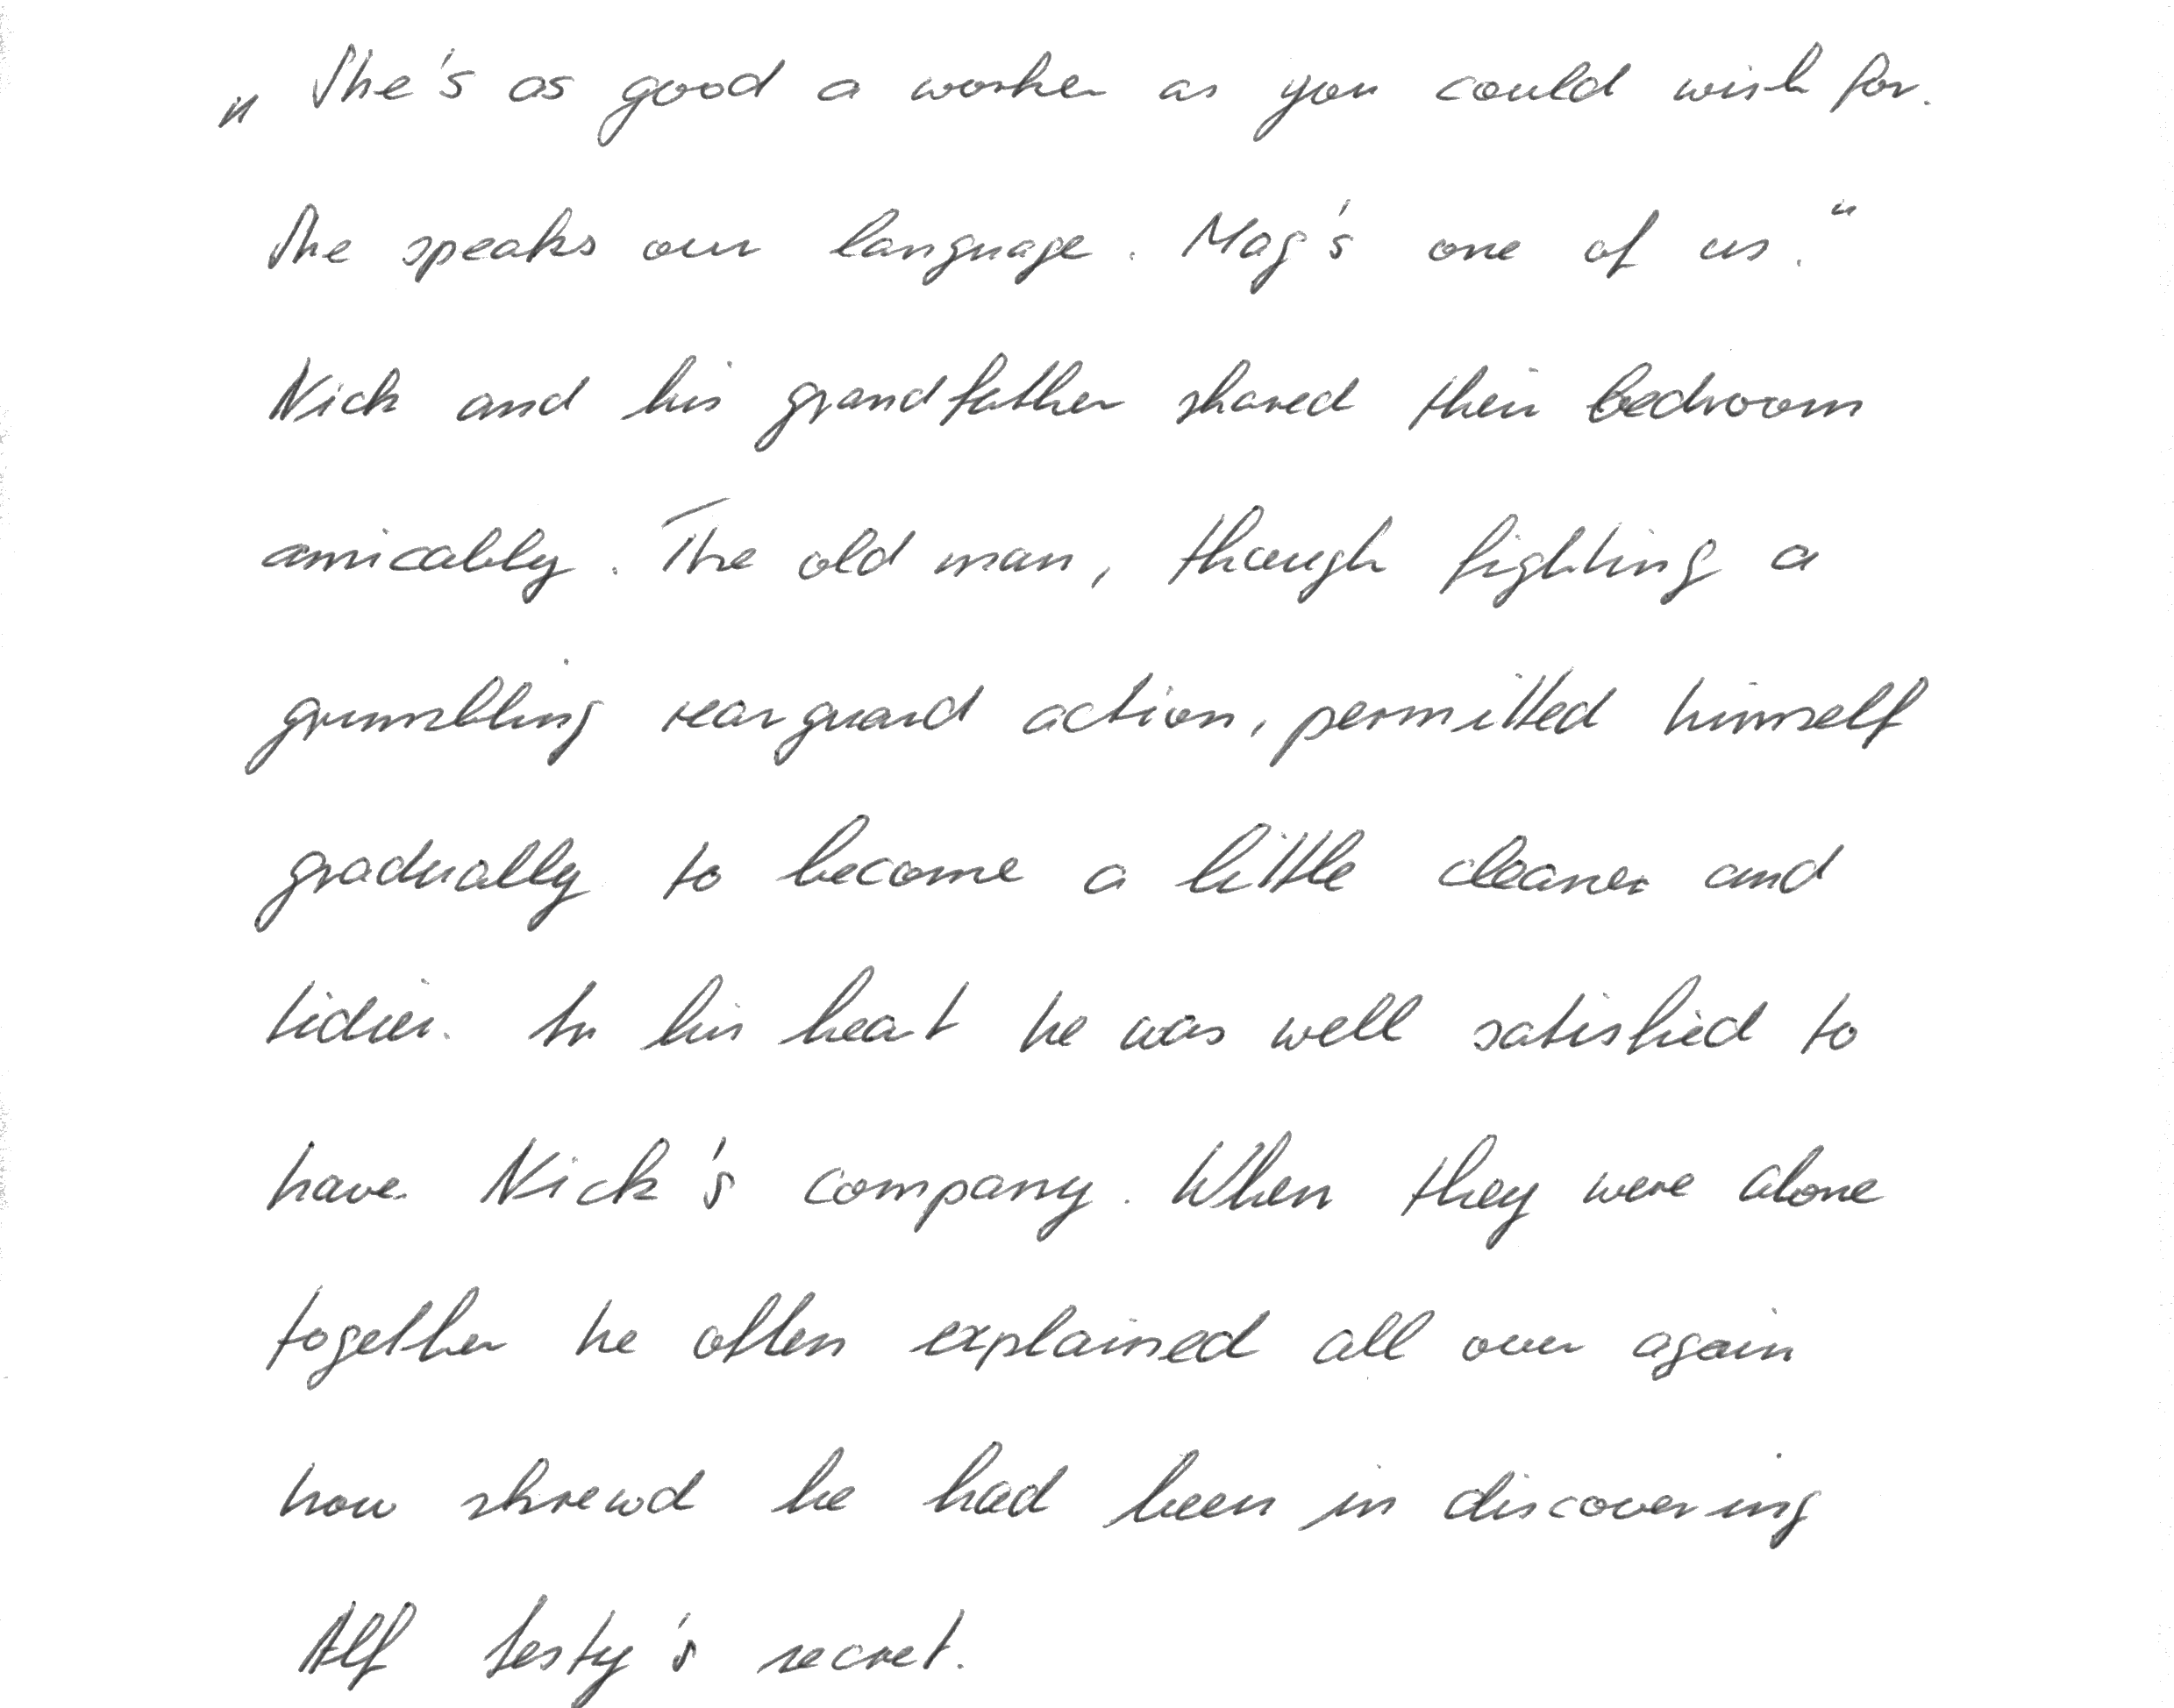 „She's as good a worker as you could wish for.
She speaks our language. Mag's one of us.“
Nick and his grandfather shared their bedroom
amicably. The old man, though fighting a
grumbling rearguard action, permitted himself
gradually to become a little cleaner and
tidier. In his heart he was well satisfied to
have Nick's company. When they were alone
together he often explained all over again
how shrewd he had been in discovering
Alf 's secret.